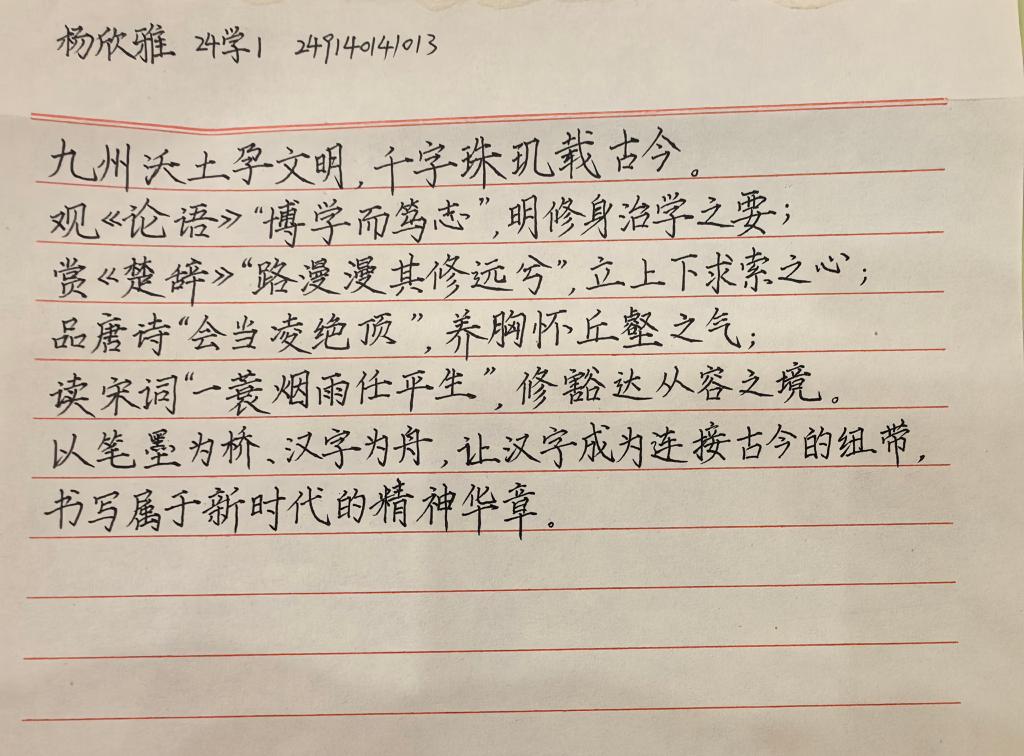 杨欣雅 24学1 249140141013
九州沃土孕文明,千字珠玑载古今。
观《论语》“博学而笃志”,明修身治学之要;
赏《楚辞》“路漫漫其修远兮”,立上下求索之心;
品唐诗“会当凌绝顶”,养胸怀丘壑之气;
读宋词“一蓑烟雨任平生”,修豁达从容之境。
以笔墨为桥、汉字为舟,让汉字成为连接古今的纽带,
书写属于新时代的精神华章。